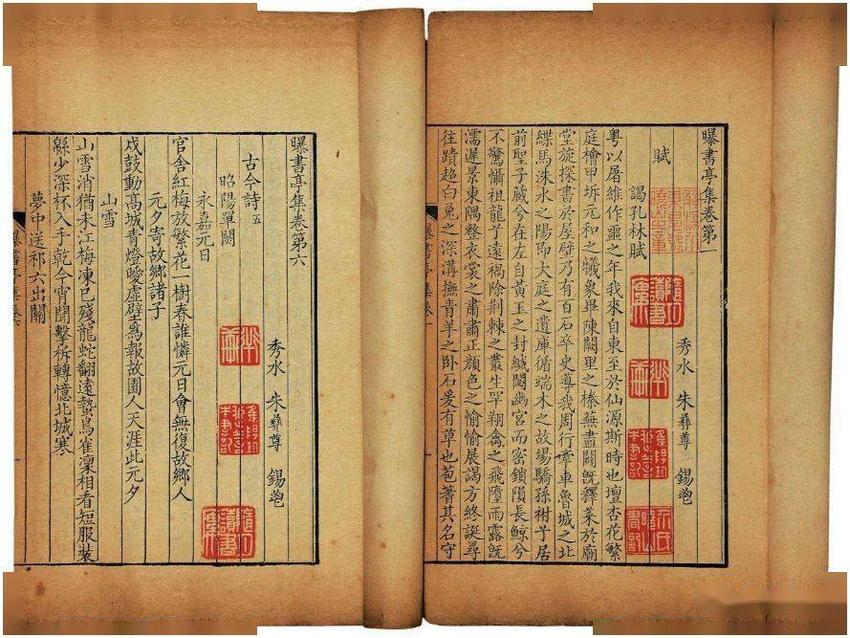 曝書亭集卷第一
秀水 朱彝尊 錫鬯
賦
謁孔林賦
粵以屠維作噩之年我來自東至於仙源斯時也壇杏花繁
庭檜甲坼元和之犧象畢陳闕里之榛蕪盡闢旣釋菜於廟
堂旋探書於屋壁乃有百石卒史導我周行牽車魯城之北
緤馬洙水之陽卽大庭之遺庫循端木之故場驕孫祔子居
前聖子藏兮在左自黃玉之封緘閟幽宮而密鎖隕長鯨兮
不驚懾祖龍乎遠楬除荆棘之叢生罕翔禽之飛墮雨露旣
濡遲景東隅整衣裳之肅肅正顏色之愉愉展謁方終誕尋
往蹟超白兎之深溝撫青羊之卧石爰有草也苞蓍其名守
曝書亭集卷第六
秀水 朱彝尊 錫鬯
古今詩 五
昭陽單閼
永嘉元日
官舍紅梅放繁花一樹春誰憐元日會無復故鄉人
元夕寄故鄉諸子
戍鼓動高城青燈曖虛壁爲報故園人天涯此元夕
山雪
山雪消猶未江梅凍已殘龍蛇翻遠蟄鳥雀凜相看短服裝
緜少深杯入手乾今宵聞擊柝轉憶北城寒
夢中送祁六出關